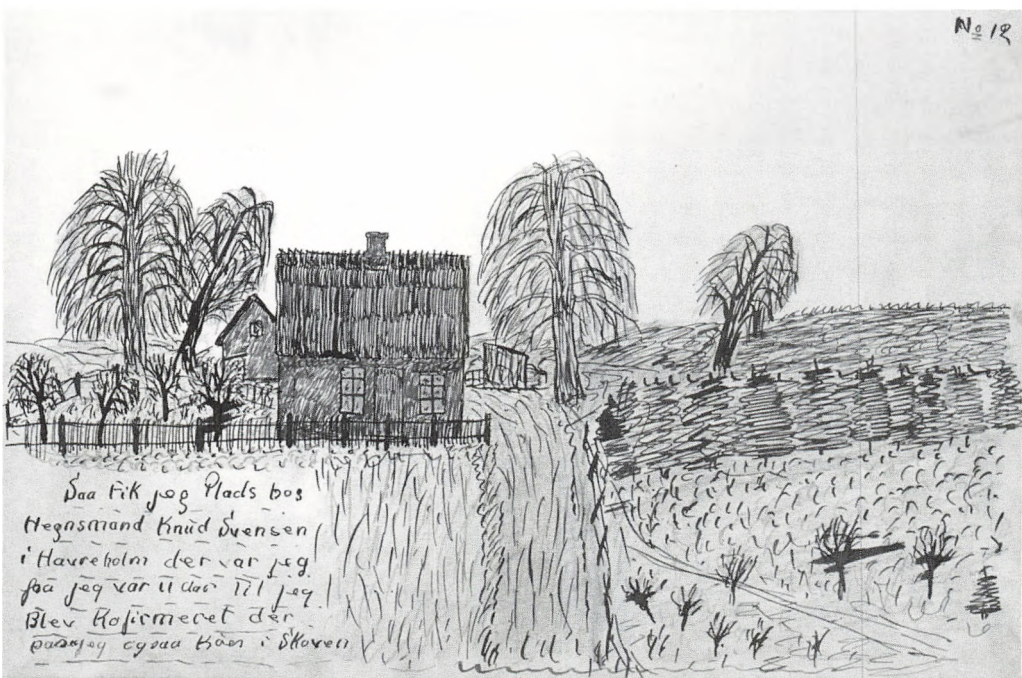 No 12
Saa fik jeg Plads hos
Hegnsmand Knud Svensen
i Havreholm der var jeg
fra jeg var 11 aar Til jeg
Blev Kofirmeret der
passjeg ogsaa Køer i Skoven